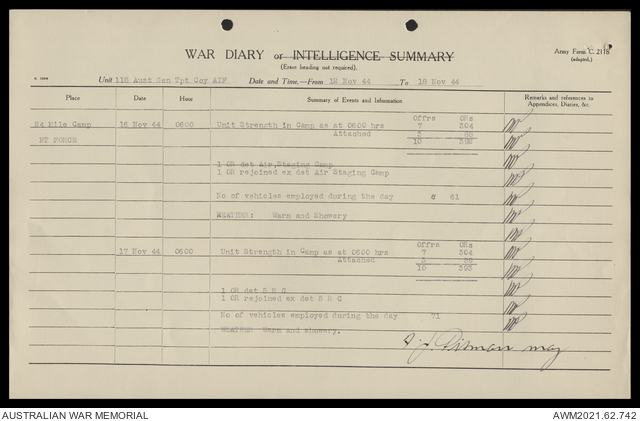 WAR DIARY or INTELLIGENCE SUMMARY
(Erase heading not required).
Army Form C. 2118
(adapted.)
Unit 118 Aust Gen Tpt Coy AIF Date and Time.—From 12 Nov 44 To 18 Nov 44
Place Date Hour Summary of Events and Information Remarks and references to Appendices, Diaries, &c.
Offrs ORs
24 Mile Camp 16 Nov 44 0600 Unit Strength in Camp as at 0600 hrs 7 304
Attached 3
NT FORCE 10
1 OR det Air Staging Camp
1 OR rejoined ex det Air Staging Camp
No of vehicles employed during the day 61
WEATHER: Warm and Showery
Offrs ORs
17 Nov 44 0600 Unit Strength in Camp as at 0600 hrs 7 304
Attached 3
10 393
1 OR det S R C
1 OR rejoined ex det S R C
No of vehicles employed during the day 71
WEATHER Warm and showery.
Pitman maj
AUSTRALIAN WAR MEMORIAL AWM2021.62.742